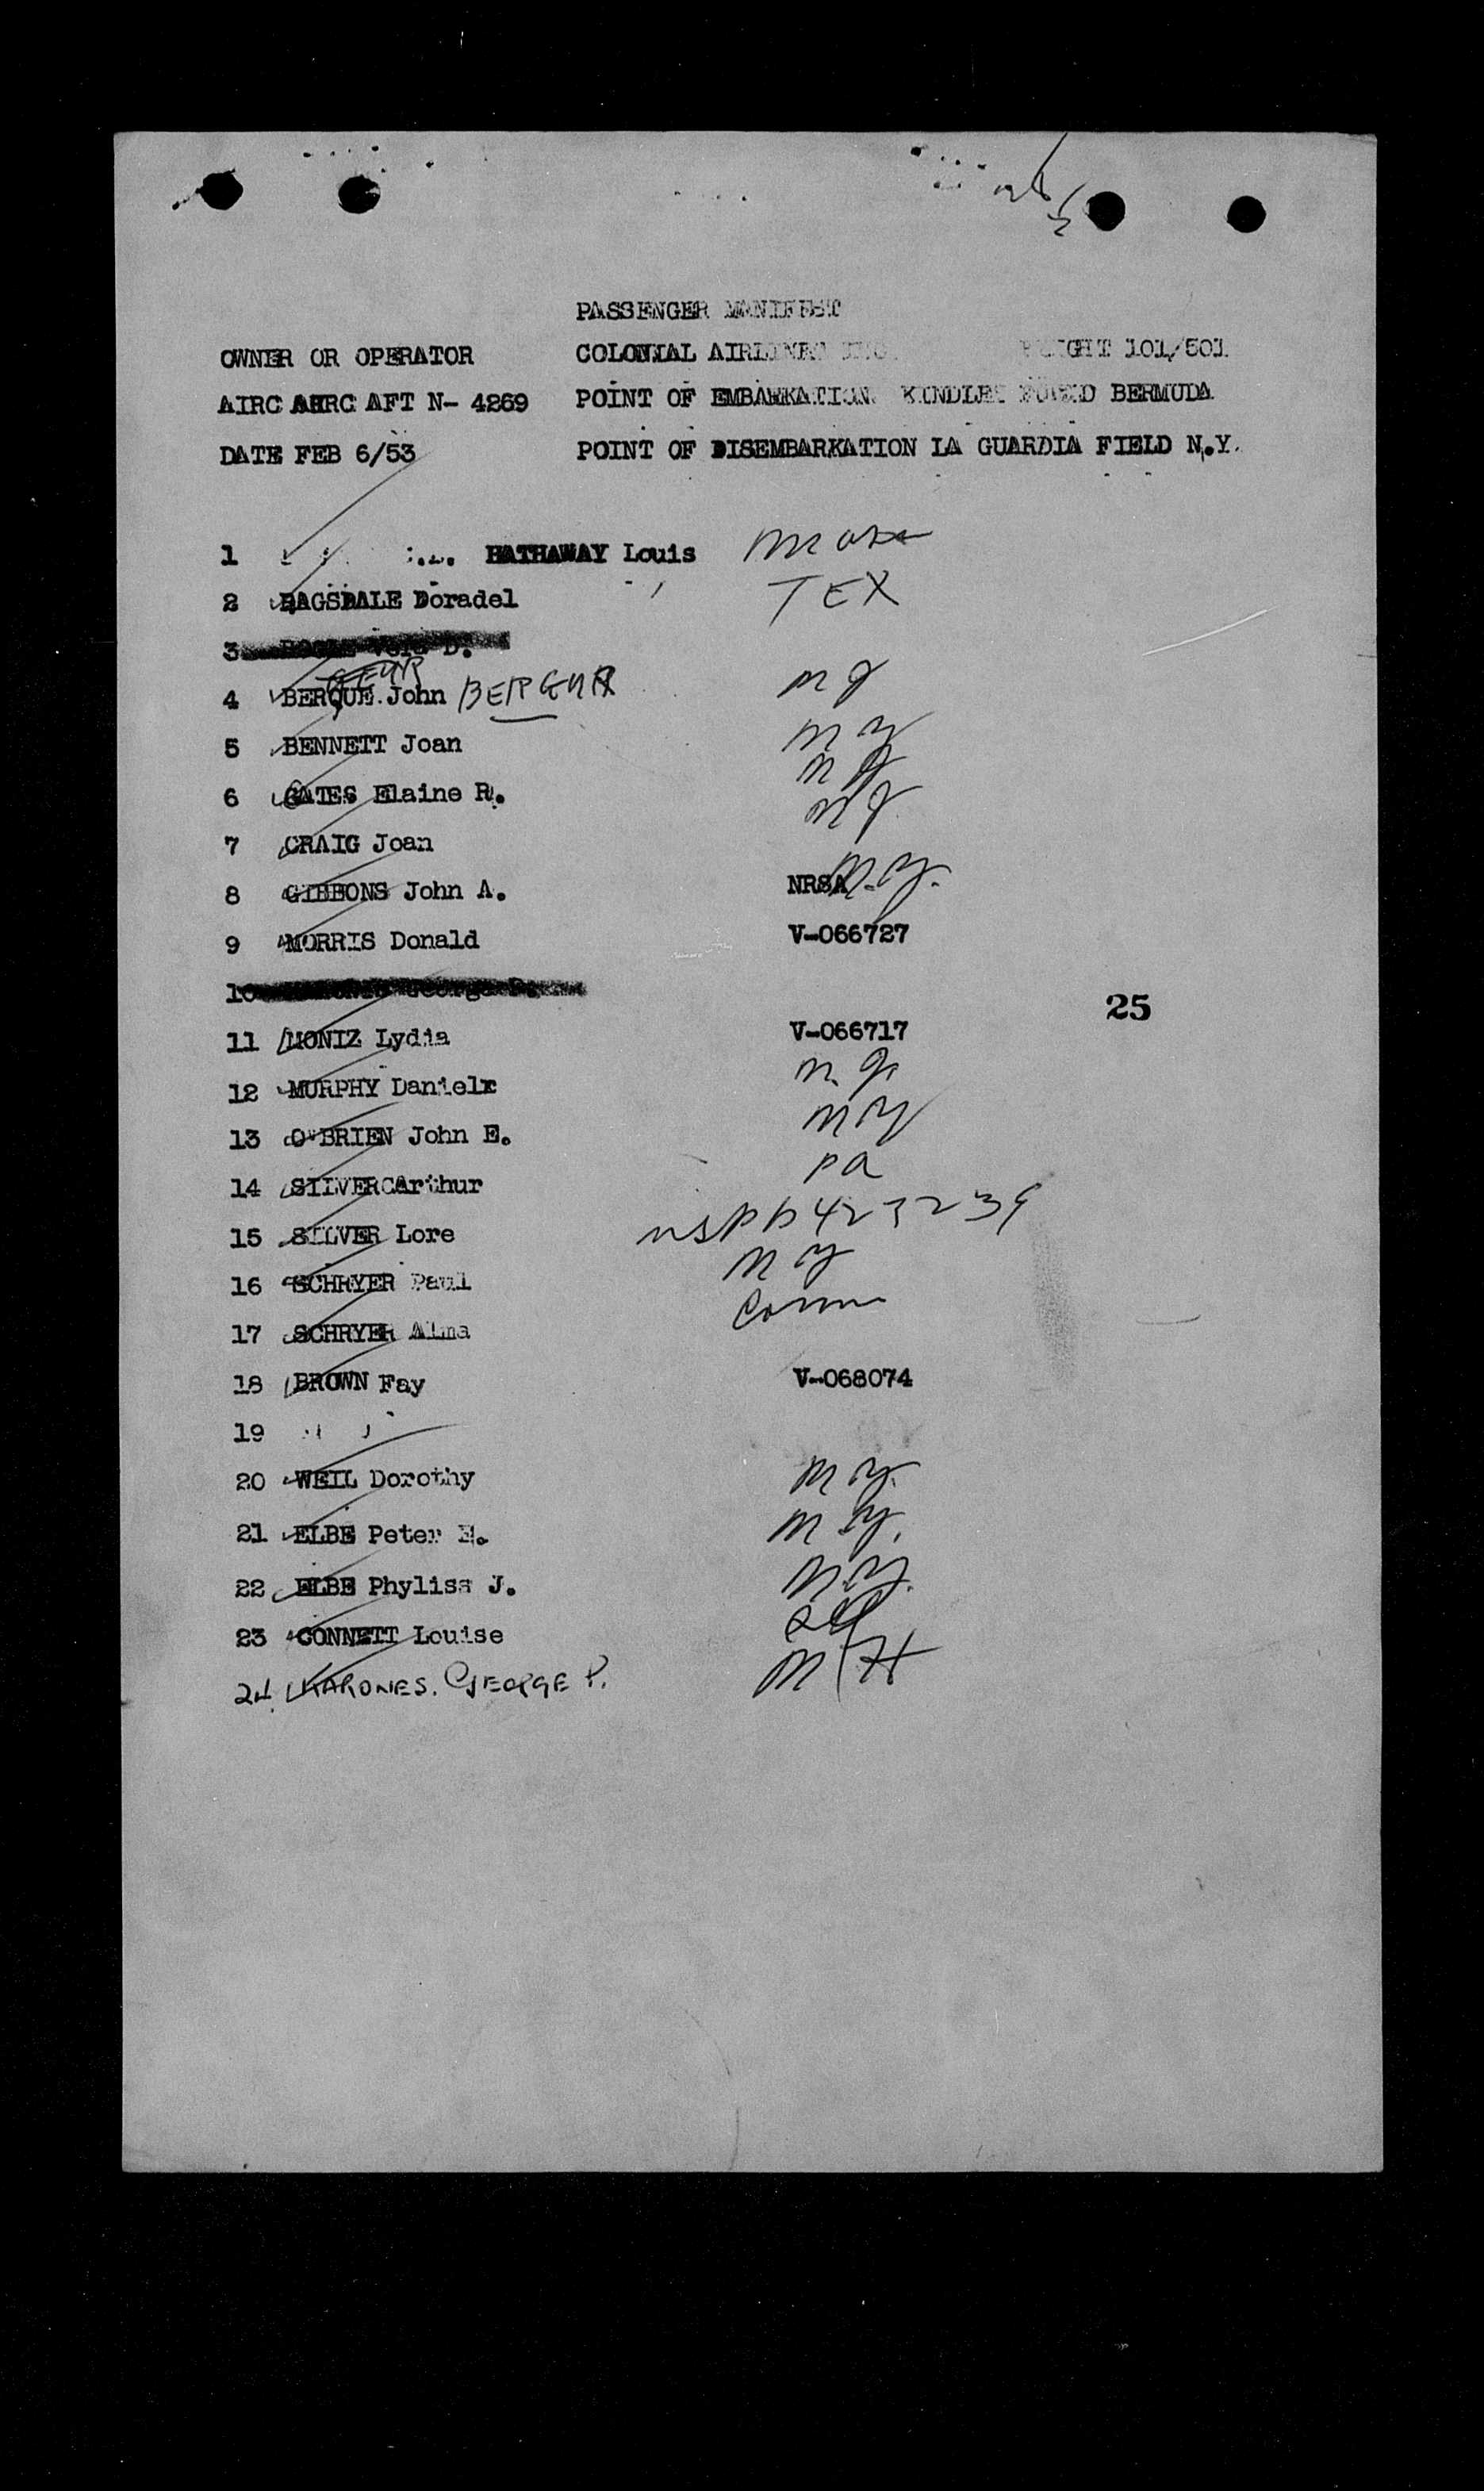 PASSENGER MANIFEST
OWNER OR OPERATOR COLONIAL AIRLINES INC. FLIGHT 101/501
AIRC AIRC AFT N- 4269 POINT OF EMBARKATION KINDLEY FIELD BERMUDA
DATE FEB 6/53 POINT OF DISEMBARKATION LA GUARDIA FIELD N.Y.
1 HATHAWAY Louis Mass
2 RAGSDALE Doradel TEX
3 D.
4 BERQUE John BERGUR NJ
5 BENNETT Joan NY
6 GATES Elaine R. NJ
7 CRAIG Joan NJ
8 GIBBONS John A. NRSA N.Y.
9 MORRIS Donald V-066727
10 George P.
25
11 MONIZ Lydia V-066717
12 MURPHY Danielr N.J.
13 O'BRIEN John E. NY
14 SILVER Arthur Pa
15 SILVER Lore
16 SCHRYER Paul NY
17 SCHRYER Alma Conn
18 BROWN Fay V-068074
19
20 WEIL Dorothy N.Y.
21 ELBE Peter E. N.Y.
22 ELBE Phyliss J. N.Y.
23 CONNETT Louise
24 KARONES. GEORGE P. NH